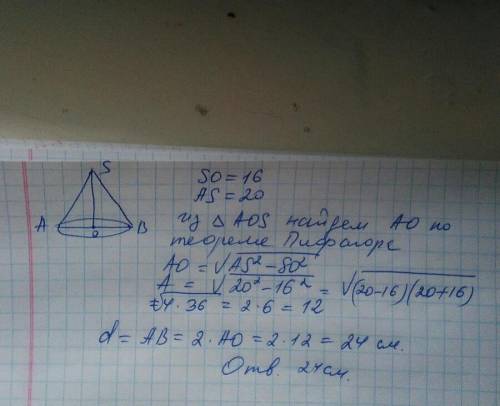 S
A
O
B
SO = 16
AS = 20
Из △ AOS найдем AO по
теореме Пифагора
AO = √AS² - SO²
A = √20² - 16² = √(20-16)(20+16)
= √4·36 = 2·6 = 12
d = AB = 2·AO = 2·12 = 24 см.
Отв. 24 см.